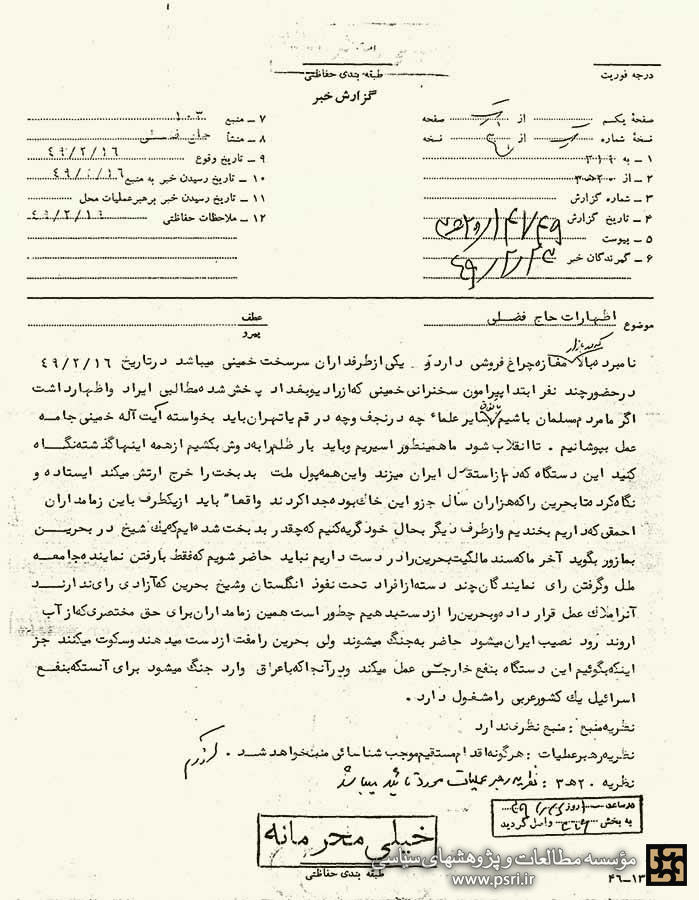 طبقه بندی حفاظتی
درجه فوریت
گزارش خبر
صفحهٔ یکم از یک صفحه
نسخهٔ شماره یک از نسخه
۱ ــ به ۳۱۹
۲ ــ از ۲۰ ه‍ ۳
۳ ــ شماره گزارش
۴ ــ تاریخ گزارش
۵ ــ پیوست
۶ ــ گیرندگان خبر ۴۹/۲/۲۳
۷ ــ منبع ۱۰۳
۸ ــ منشأ حاج فضلی
۹ ــ تاریخ وقوع ۴۹/۲/۱۶
۱۰ ــ تاریخ رسیدن خبر به منبع ۴۹/۲/۱۶
۱۱ ــ تاریخ رسیدن خبر برهبرعملیات محل
۱۲ ــ ملاحظات حفاظتی ۴۹/۲/۱۹
موضوع اظهارات حاج فضلی
عطف
پیرو
نامبرده بالا که در بازار مغازه چراغ فروشی دارد و یکی از طرفداران سرسخت خمینی میباشد در تاریخ ۴۹/۲/۱۶
در حضور چند نفر ابتدا پیرامون سخنرانی خمینی که از رادیو بغداد پخش شده مطالبی ایراد و اظهار داشت
اگر ما مردم مسلمان باشیم سایر علماء چه در نجف و چه در قم یا تهران باید بخواسته آیت آله خمینی جامه
عمل بپوشانیم . تا انقلاب شود ما همینطور اسیریم و باید بار ظلم را به دوش بکشیم از همه اینها گذشته نگاه
کنید این دستگاه که دم از استقلال ایران میزند و این همه پول ملت بدبخت را خرج ارتش میکند ایستاده و
نگاه کرد تا بحرین را که هزاران سال جزو این خاک بوده جدا کردند واقعا" باید از یکطرف باین زمامداران
احمقی که داریم بخندیم و از طرف دیگر بحال خود گریه کنیم که چقدر بدبخت شده ایم که یک شیخ در بحرین
بما زور بگوید آخر ما که سند مالکیت بحرین را در دست داریم نباید حاضر شویم که فقط با رفتن نماینده جامعه
ملل و گرفتن رای نمایندگان چند دسته از افراد تحت نفوذ انگلستان و شیخ بحرین که آزادی رای ندارند
آنرا ملاک عمل قرار داده و بحرین را از دست بدهیم چطور است همین زمامداران برای حق مختصری که از آب
اروند رود نصیب ایران میشود حاضر به جنگ میشوند ولی بحرین را مفت از دست میدهند و سکوت میکنند جز
اینکه بگوئیم این دستگاه بنفع خارجی عمل میکند و در آنجا که با عراق وارد جنگ میشود برای آنستکه بنفع
اسرائیل یک کشور عربی را مشغول دارد .
نظریه منبع : منبع نظری ندارد
نظریه رهبر عملیات : هرگونه اقدام مستقیم موجب شناسائی منبع خواهد شد .
نظریه ۲۰ ه‍ ۳ : نظریه رهبر عملیات مورد تائید میباشد
در ساعت روز
به بخش واصل گردید
خیلی محرمانه
طبقه بندی حفاظتی
۱۳ــ۴۶
مؤسسه مطالعات و پژوهشهای سیاسی
www.psri.ir